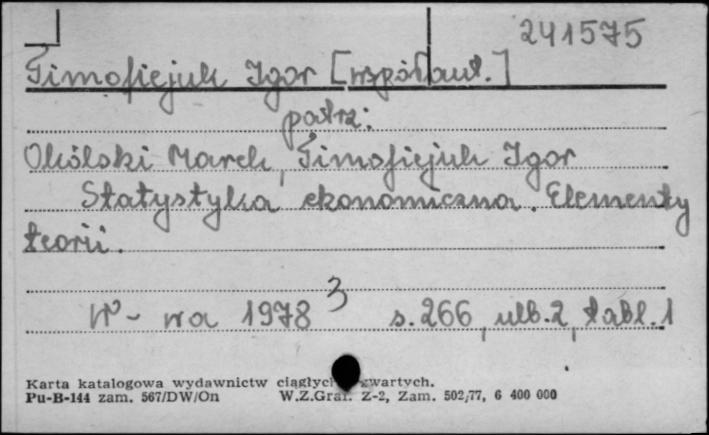 241575
Timofiejuk Igor [współaut.]
patrz:
Okólski Marek, Timofiejuk Igor
Statystyka ekonomiczna. Elementy
teorii.
W-wa 1978³ s.266, ulb.2, tabl.1
Karta katalogowa wydawnictw ciągłych zwartych.
Pu-B-144 zam. 567/DW/On W.Z.Graf. Z-2, Zam. 502/77, 6 400 000